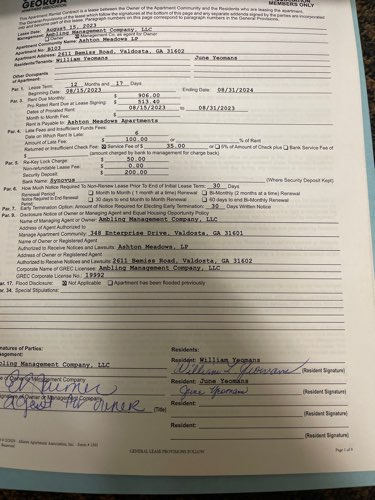 GEORGIA
MEMBERS ONLY
This Apartment Rental Contract is a lease between the Owner of the Apartment Community and the Residents who are leasing the apartment.
The General Provisions of the lease follow the signatures at the bottom of this page and any separate addenda signed by the parties are incorporated
into and become part of this lease. Paragraph numbers on this page correspond to paragraph numbers in the General Provisions.
Lease Date: August 15, 2023
Management: Ambling Management Company, LLC
Owner Management Co. as agent for Owner
Apartment Community Name: Ashton Meadows LP
Apartment No: B103
Apartment Address: 2611 Bemiss Road, Valdosta, GA 31602
Residents/Tenants: William Yeomans June Yeomans
Other Occupants
of Apartment:
Par. 1. Lease Term: 12 Months and 17 Days
Beginning Date: 08/15/2023 Ending Date: 08/31/2024
Par. 3. Rent Due Monthly: $ 906.00
Pro Rated Rent Due at Lease Signing: $ 513.40
Dates of Prorated Rent: 08/15/2023 to 08/31/2023
Month to Month Fee: $
Rent is Payable to: Ashton Meadows Apartments
Par. 4. Late Fees and Insufficient Funds Fees:
Date on Which Rent is Late: 6
Amount of Late Fee: $ 100.00 or % of Rent
Returned or Insufficient Check Fee: Service Fee of $ 35.00 or 5% of Amount of Check plus Bank Service Fee of
$ (amount charged by bank to management for charge back)
Par. 5. Re-Key Lock Charge: $ 50.00
Non-refundable Lease Fee: $ 0.00
Security Deposit: $ 200.00
Bank Name: Synovus (Where Security Deposit Kept)
Par. 6. How Much Notice Required To Non-Renew Lease Prior To End of Initial Lease Term: 30 Days
Renewal Period: Month to Month (1 month at a time) Renewal Bi-Monthly (2 months at a time) Renewal
Notice Required to End Renewal Period: 30 days to end Month to Month Renewal 60 days to end Bi-Monthly Renewal
Par. 7. Early Termination Option: Amount of Notice Required for Electing Early Termination: 30 Days Written Notice
Par. 9. Disclosure Notice of Owner or Managing Agent and Equal Housing Opportunity Policy
Name of Managing Agent or Owner: Ambling Management Company, LLC
Address of Agent Authorized to
Manage Apartment Community: 348 Enterprise Drive, Valdosta, GA 31601
Name of Owner or Registered Agent
Authorized to Receive Notices and Lawsuits: Ashton Meadows, LP
Address of Owner or Registered Agent
Authorized to Receive Notices and Lawsuits: 2611 Bemiss Road, Valdosta, GA 31602
Corporate Name of GREC Licensee: Ambling Management Company, LLC
GREC Corporate License No.: 19992
ar. 17. Flood Disclosure: Not Applicable Apartment has been flooded previously
ar. 34. Special Stipulations:
gnatures of Parties: Residents:
nagement: Resident: William Yeomans
bling Management Company, LLC William L Yeomans (Resident Signature)
Resident: June Yeomans
June Yeomans (Resident Signature)
agent for owner (Title) Resident:
(Resident Signature)
Resident:
(Resident Signature)
Atlanta Apartment Association, Inc.
GENERAL LEASE PROVISIONS FOLLOW